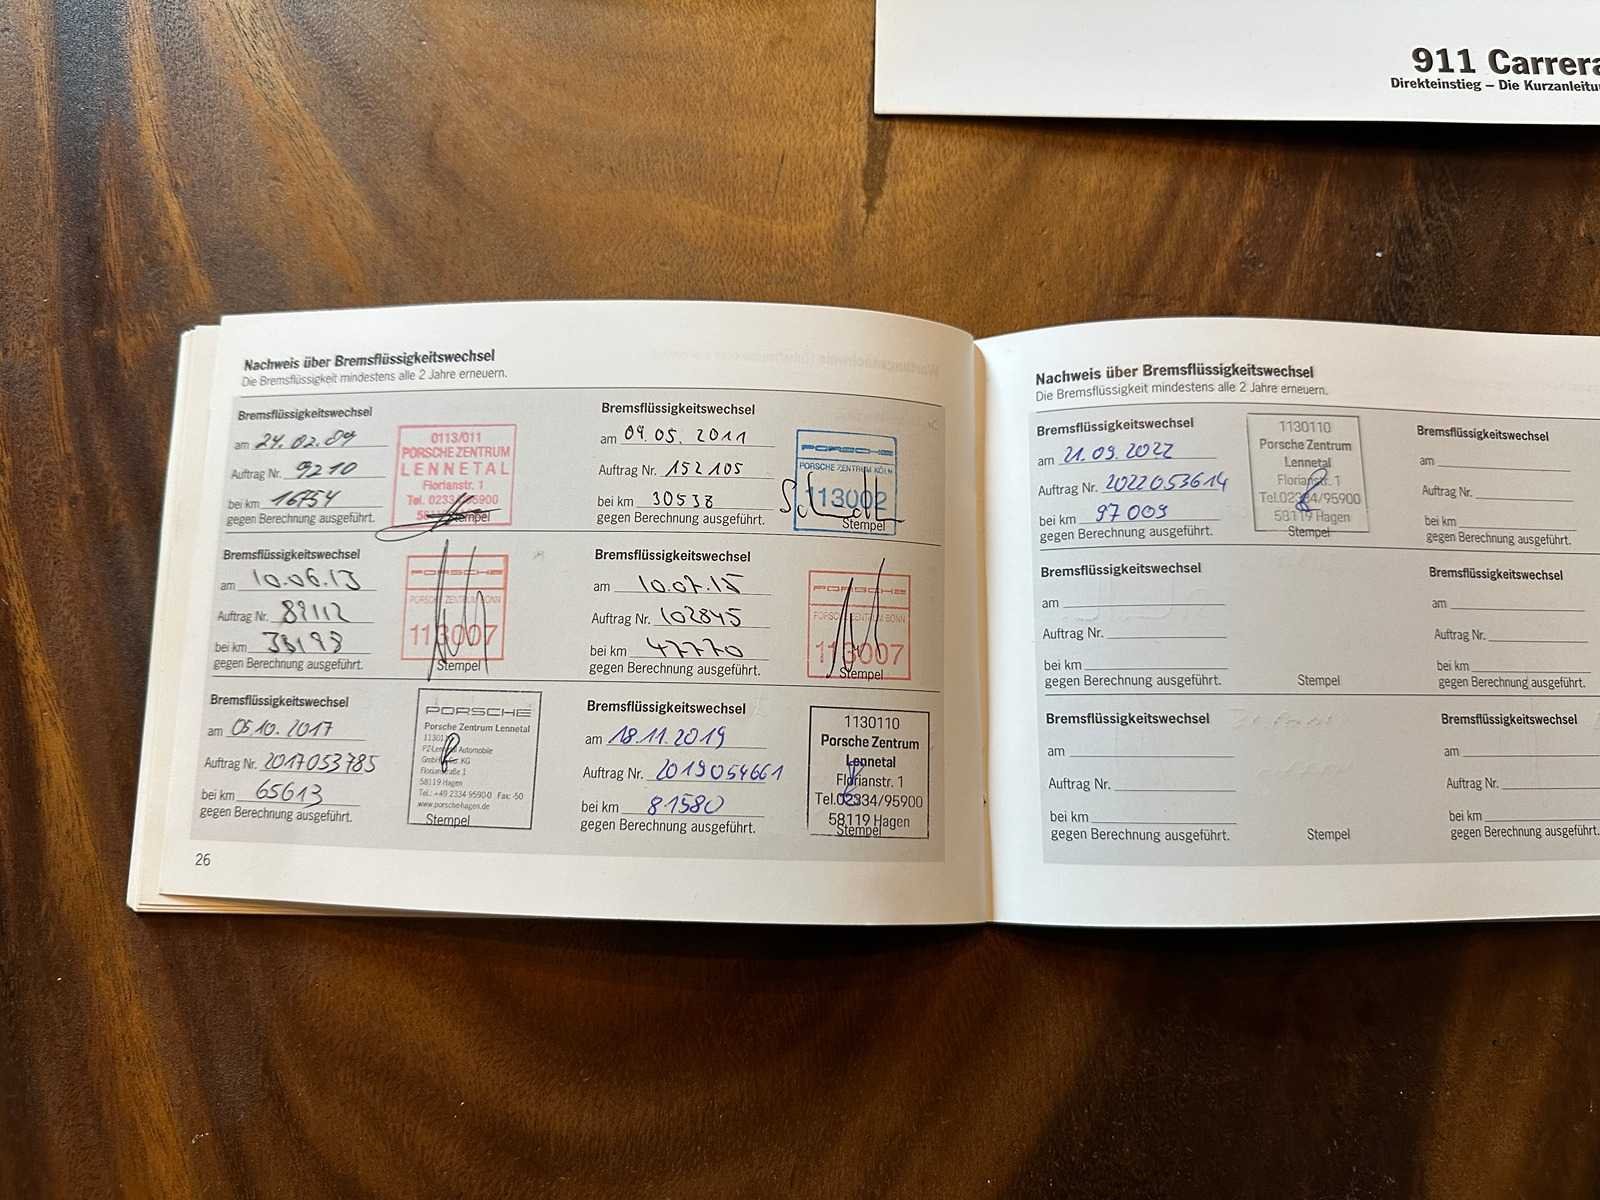 911 Carrera
Direkteinstieg – Die Kurzanleitu
Nachweis über Bremsflüssigkeitswechsel
Die Bremsflüssigkeit mindestens alle 2 Jahre erneuern.
Bremsflüssigkeitswechsel
am 24.02.09
Auftrag Nr. 9210
bei km 16754
gegen Berechnung ausgeführt.
0113/011
PORSCHE ZENTRUM
LENNETAL
Florianstr. 1
Tel. 02334/95900
Stempel
Bremsflüssigkeitswechsel
am 09.05.2011
Auftrag Nr. 152105
bei km 30538
gegen Berechnung ausgeführt.
PORSCHE
PORSCHE ZENTRUM KÖLN
113002
Stempel
Bremsflüssigkeitswechsel
am 10.06.13
Auftrag Nr. 89112
bei km 38198
gegen Berechnung ausgeführt.
PORSCHE
PORSCHE ZENTRUM BONN
113007
Stempel
Bremsflüssigkeitswechsel
am 10.07.15
Auftrag Nr. 102845
bei km 47770
gegen Berechnung ausgeführt.
PORSCHE
PORSCHE ZENTRUM BONN
113007
Stempel
Bremsflüssigkeitswechsel
am 05.10.2017
Auftrag Nr. 2017053785
bei km 65613
gegen Berechnung ausgeführt.
PORSCHE
Porsche Zentrum Lennetal
Automobile
KG
Florianstraße 1
58119 Hagen
Tel.: +49 2334 9590-0 Fax: -50
www.porsche-hagen.de
Stempel
Bremsflüssigkeitswechsel
am 18.11.2019
Auftrag Nr. 2019054661
bei km 81580
gegen Berechnung ausgeführt.
1130110
Porsche Zentrum
Lennetal
Florianstr. 1
Tel.02334/95900
58119 Hagen
Stempel
26
Nachweis über Bremsflüssigkeitswechsel
Die Bremsflüssigkeit mindestens alle 2 Jahre erneuern.
Bremsflüssigkeitswechsel
am 21.09.2022
Auftrag Nr. 2022053614
bei km 97009
gegen Berechnung ausgeführt.
1130110
Porsche Zentrum
Lennetal
Florianstr. 1
Tel.02334/95900
58119 Hagen
Stempel
Bremsflüssigkeitswechsel
am
Auftrag Nr.
bei km
gegen Berechnung ausgeführt.
Bremsflüssigkeitswechsel
am
Auftrag Nr.
bei km
gegen Berechnung ausgeführt.
Stempel
Bremsflüssigkeitswechsel
am
Auftrag Nr.
bei km
gegen Berechnung ausgeführt.
Bremsflüssigkeitswechsel
am
Auftrag Nr.
bei km
gegen Berechnung ausgeführt.
Stempel
Bremsflüssigkeitswechsel
am
Auftrag Nr.
bei km
gegen Berechnung ausgeführt.